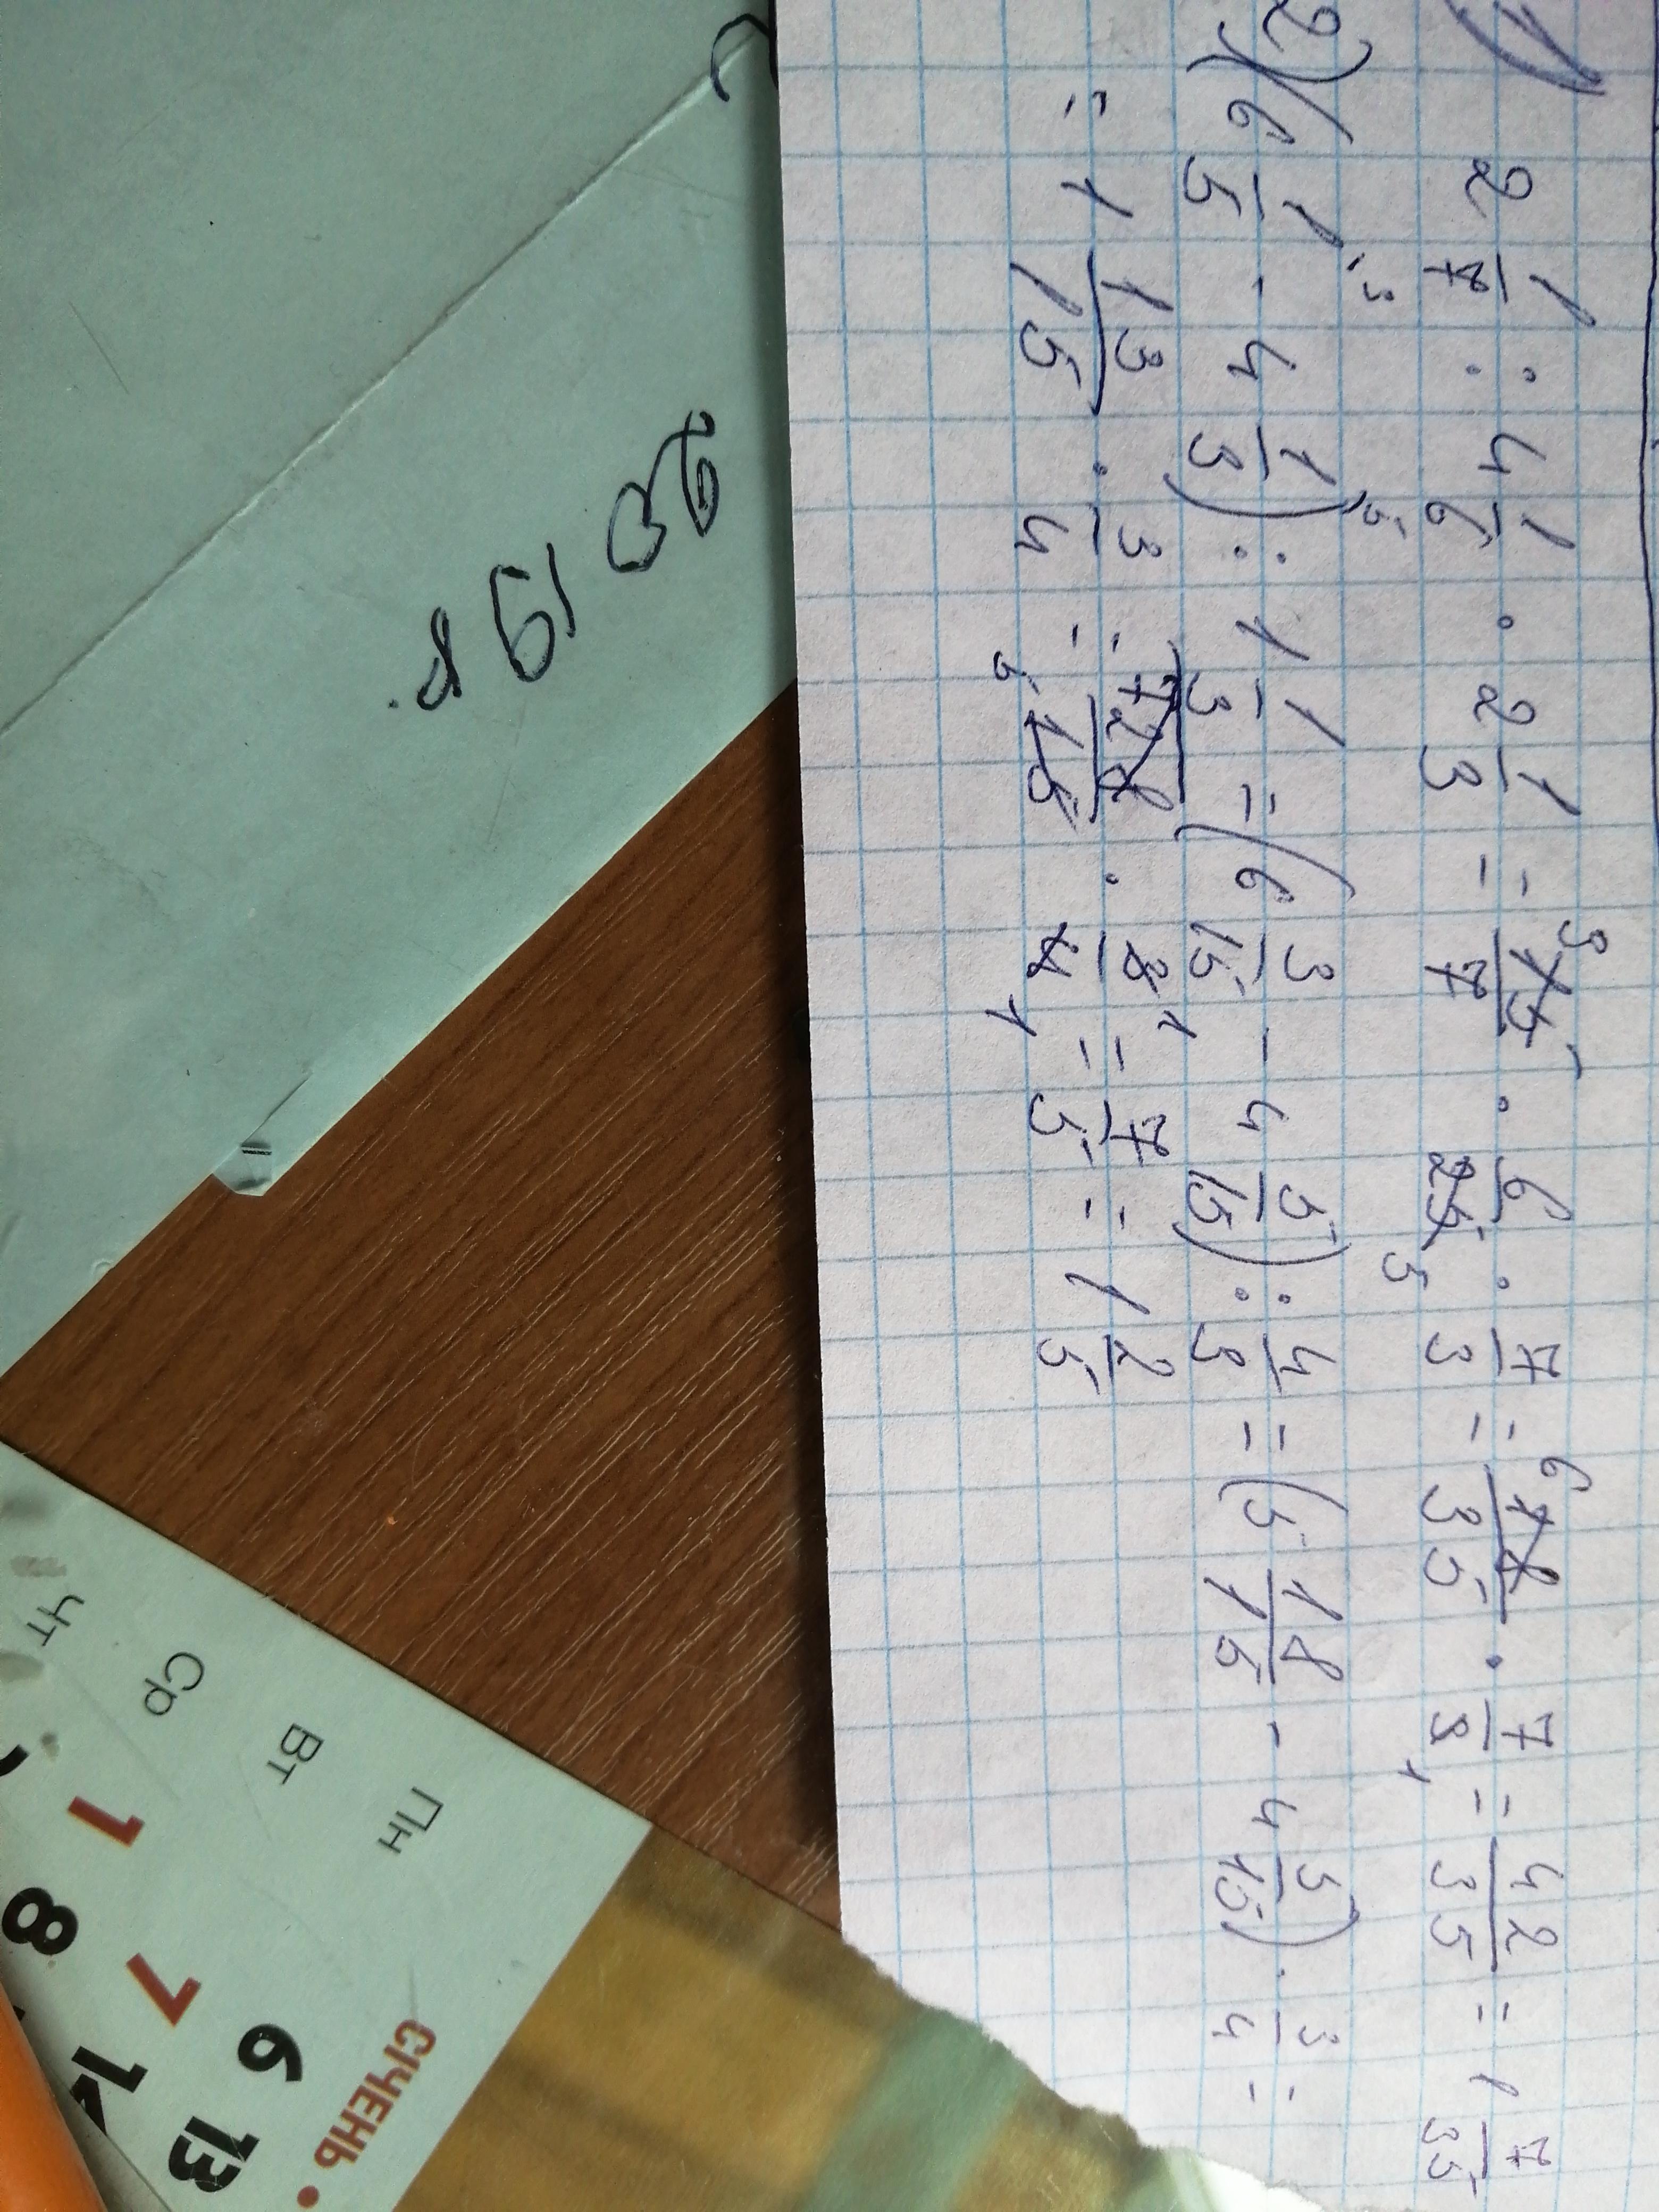 1) 2 1/7 : 4 1/6 · 2 1/3 = 15/7 · 6/25 · 7/3 = 18/35 · 7/3 = 42/35 = 1 7/35
2) (6 1/5 - 4 1/3) : 1 1/3 = (6 3/15 - 4 5/15) : 4/3 = (5 18/15 - 4 5/15) · 3/4 =
= 1 13/15 · 3/4 = 28/15 · 3/4 = 7/5 = 1 2/5
2019 р.
СІЧЕНЬ •
Пн 6 13
Вт 7
Ср 1 8
Чт